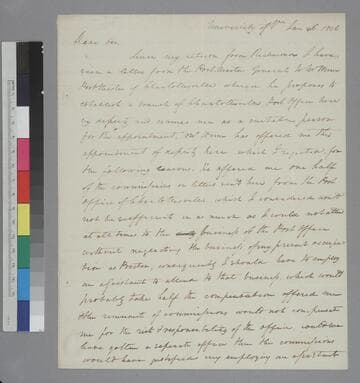 University of Va. Jan 26. 1826
Dear Sir.
Since my return from Richmond I have
seen a letter from the Post Master General to Wm Winn
Post Master of Charlottesville wherein he proposes to
establish a branch of Charlottesville Post Office here
by deputy and names me as a suitable person
for the appointment, Mr Winn has offered me this
appointment of deputy here which I rejected, for
the following reasons. he offered me one half
of the commissions on letters sent here from the Post
Office of Charlottesville which I considered would
not be sufficient in as much as I could not attend
at all times to the business of the Post Office
without neglecting the business of my present occupa
tion as Proctor, consequently I should have to employ
an assistant to attend to that business, which would
probably take half the compensation offered me
& the remnant of commissions would not compensate
me for the risk & responsibility of the office. could we
have gotten a separate office then the commissions
would have justified my employing an assistant